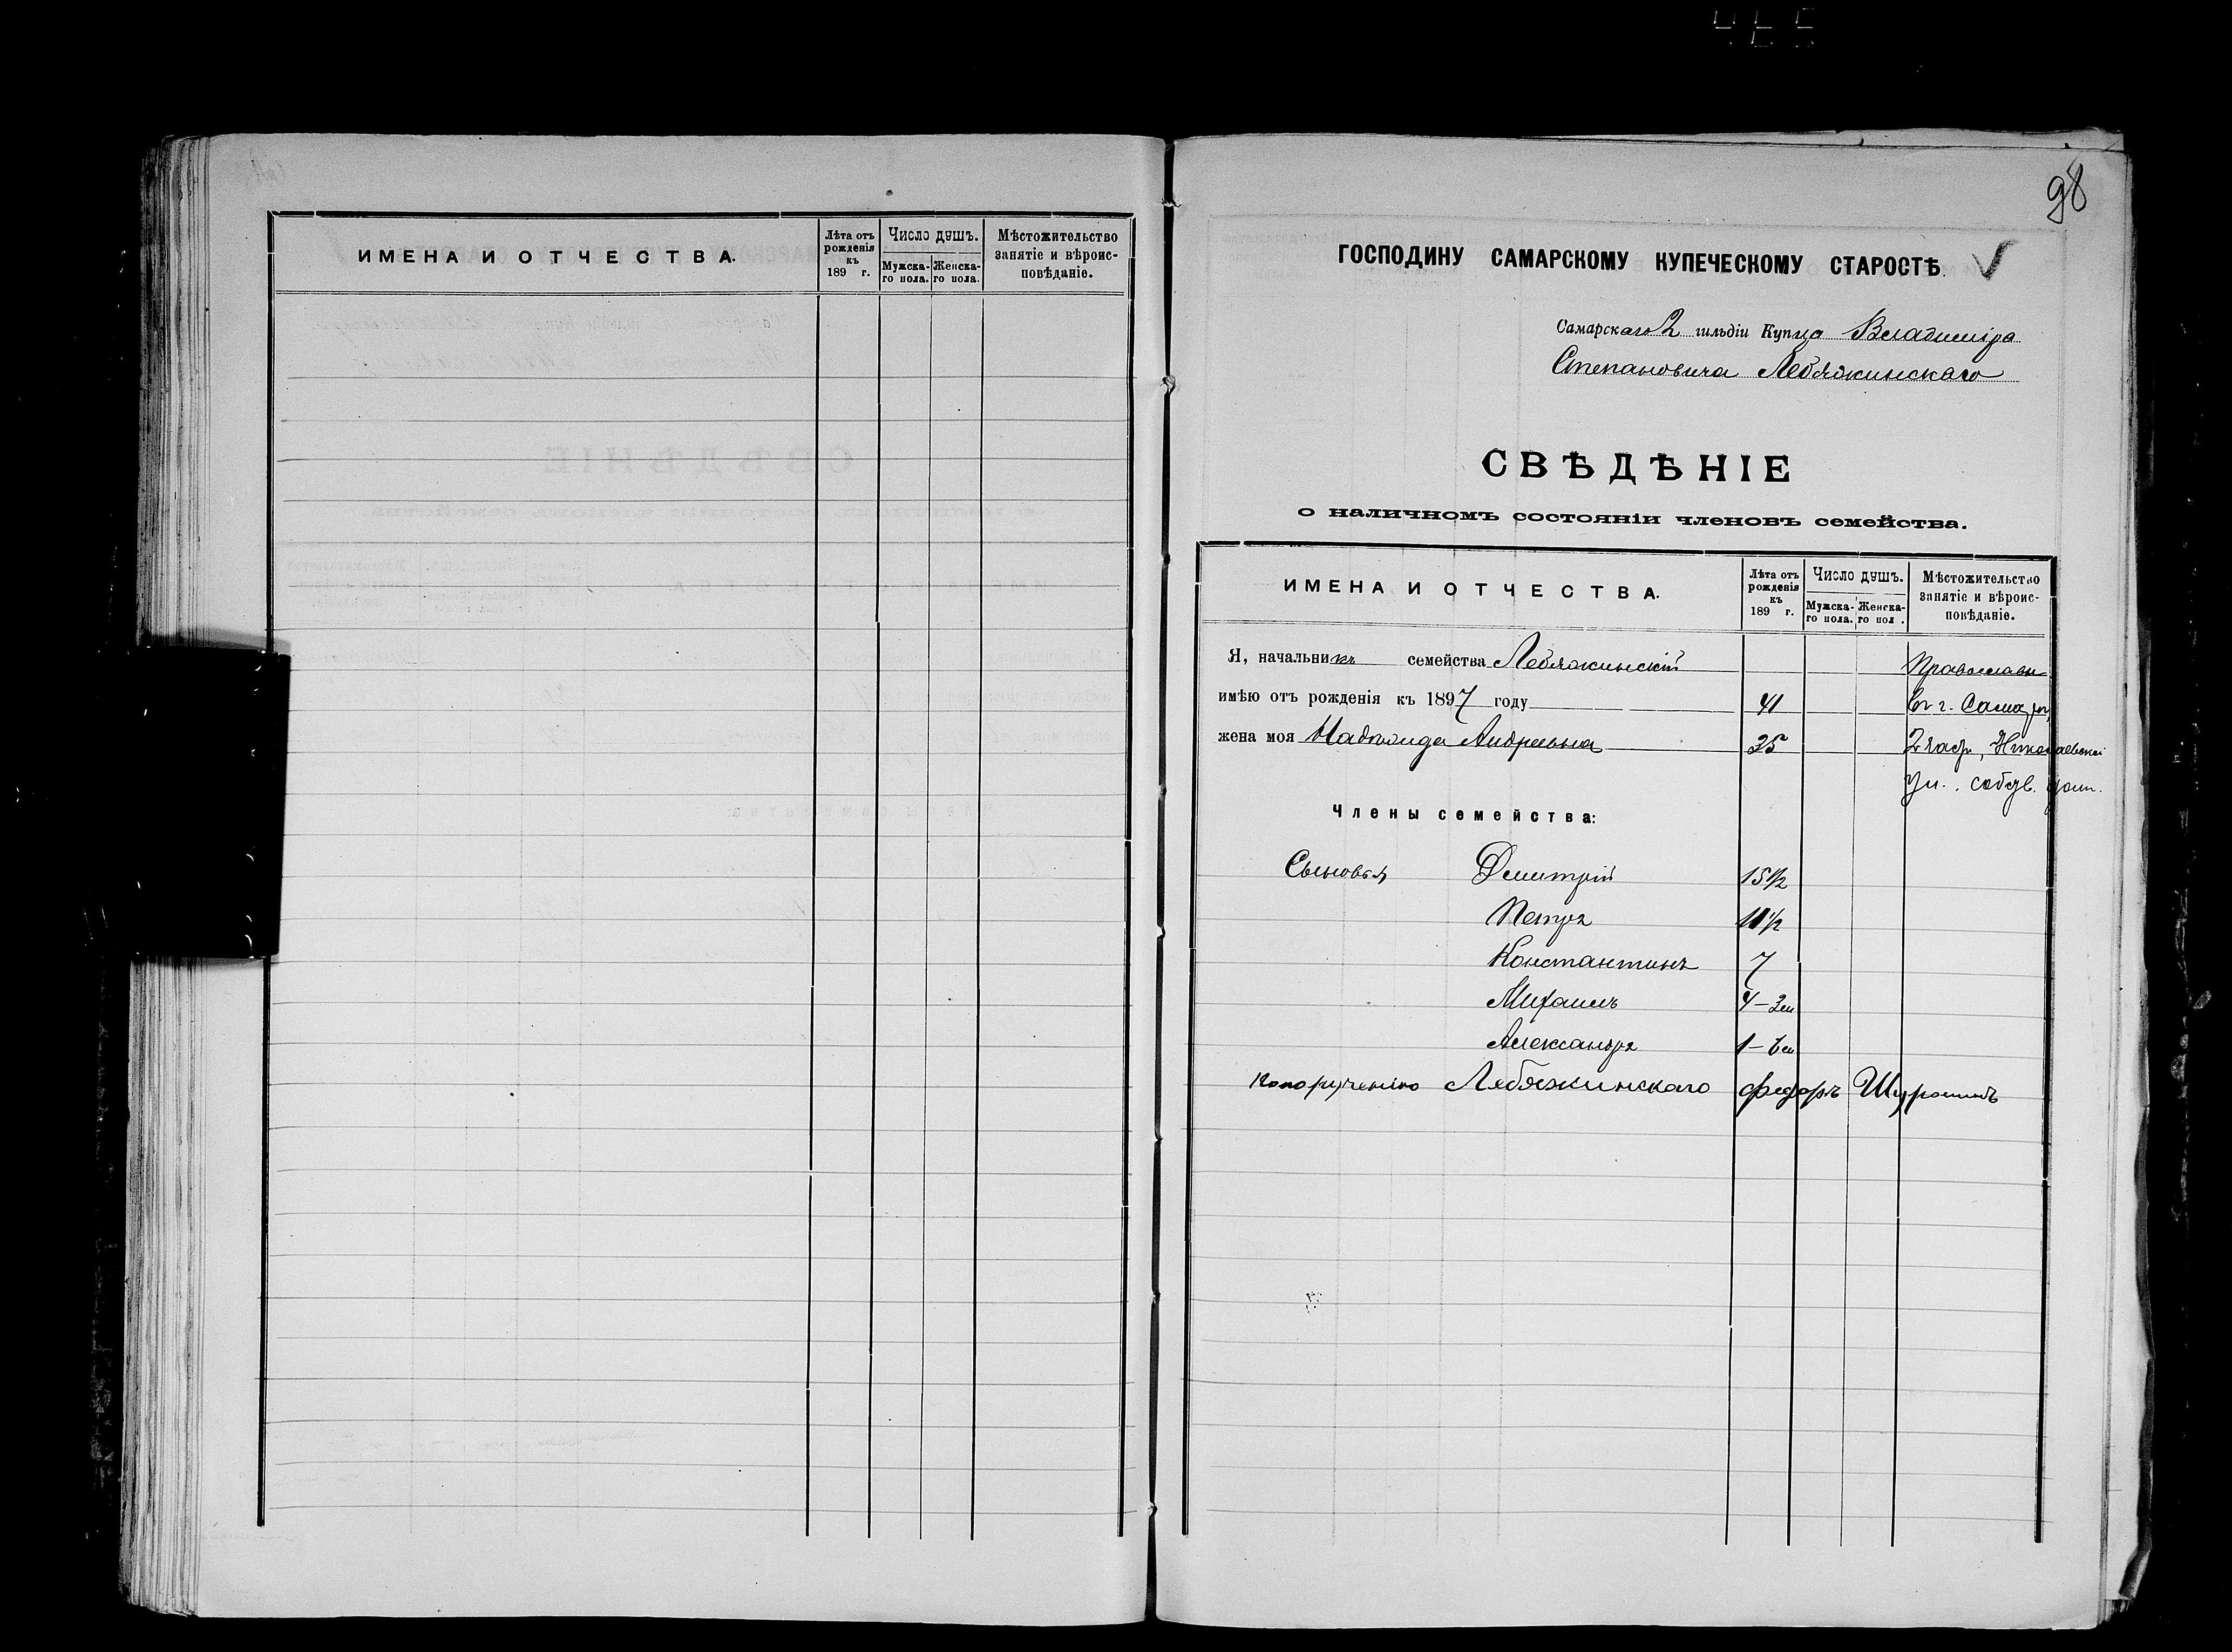 ИМЕНА И ОТЧЕСТВА.
Лѣта отъ рожденія къ 189 г.
Число душъ.
Мужска-го пола.
Женска-го пола.
Мѣстожительство занятіе и вѣроис-повѣданіе.
98
ГОСПОДИНУ САМАРСКОМУ КУПЕЧЕСКОМУ СТАРОСТѢ.
Самарскаго 2 гильдіи Купца Владиміра
Степановича Лебяжинскаго
СВѢДѢНІЕ
о наличномъ состояніи членовъ семейства.
ИМЕНА И ОТЧЕСТВА.
Лѣта отъ рожденія къ 189 г.
Число душъ.
Мужска-го пола.
Женска-го пол .
Мѣстожительство занятіе и вѣроис-повѣданіе.
Я, начальникъ семейства Лебяжинскій Православн
имѣю отъ рожденія къ 1897 году 41 Въ г. Самарѣ,
жена моя Надѣжда Андреевна 25 2 част, Николаевской
ул. собств. дом.
Члены семейства:
Сыновья Дмитрій 15½
Петръ 11½
Константинъ 7
Михаилъ 4–3м
Александръ 1–6м
Лебяжинскаго Федоръ